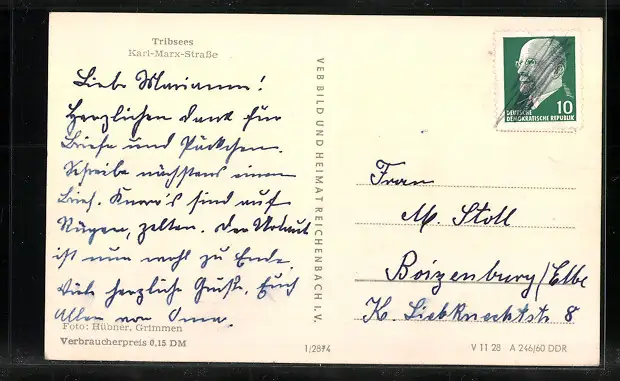 Tribsees
Karl-Marx-Straße
Liebe Marianne!
Herzlichen Dank für
Briefe und Päckchen.
Schreibe nächstens einen
Brief. Knorr's sind auf
Rügen, zelten. Der Urlaub
ist nun wohl zu Ende.
Viele herzliche Grüße, Euch
Allen von Oma.
Foto: Hübner, Grimmen
Verbraucherpreis 0,15 DM
VEB BILD UND HEIMAT REICHENBACH i. V.
1/2874
DEUTSCHE
DEMOKRATISCHE REPUBLIK
10
Frau
M. Stoll
Boizenburg/Elbe
K. Liebknechtstr. 8
V 11 28 A 246/60 DDR